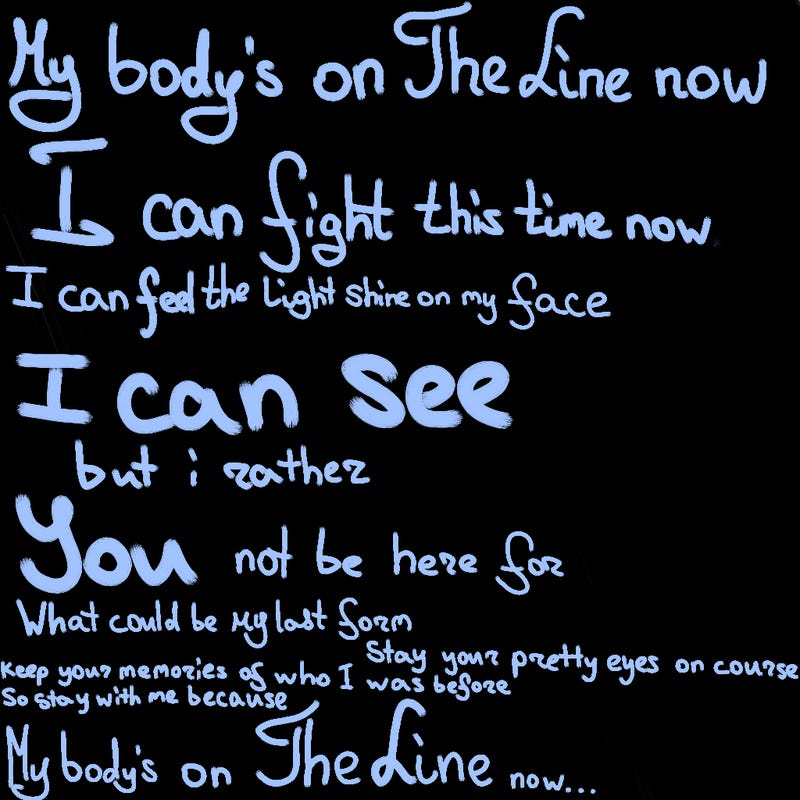 My body's on The Line now
I can fight this time now
I can feel the Light shine on my face
I can see
but i rather
You not be here for
What could be My last form
Stay your pretty eyes on course
Keep your memories of who I was before
So stay with me because
My body's on The Line now...